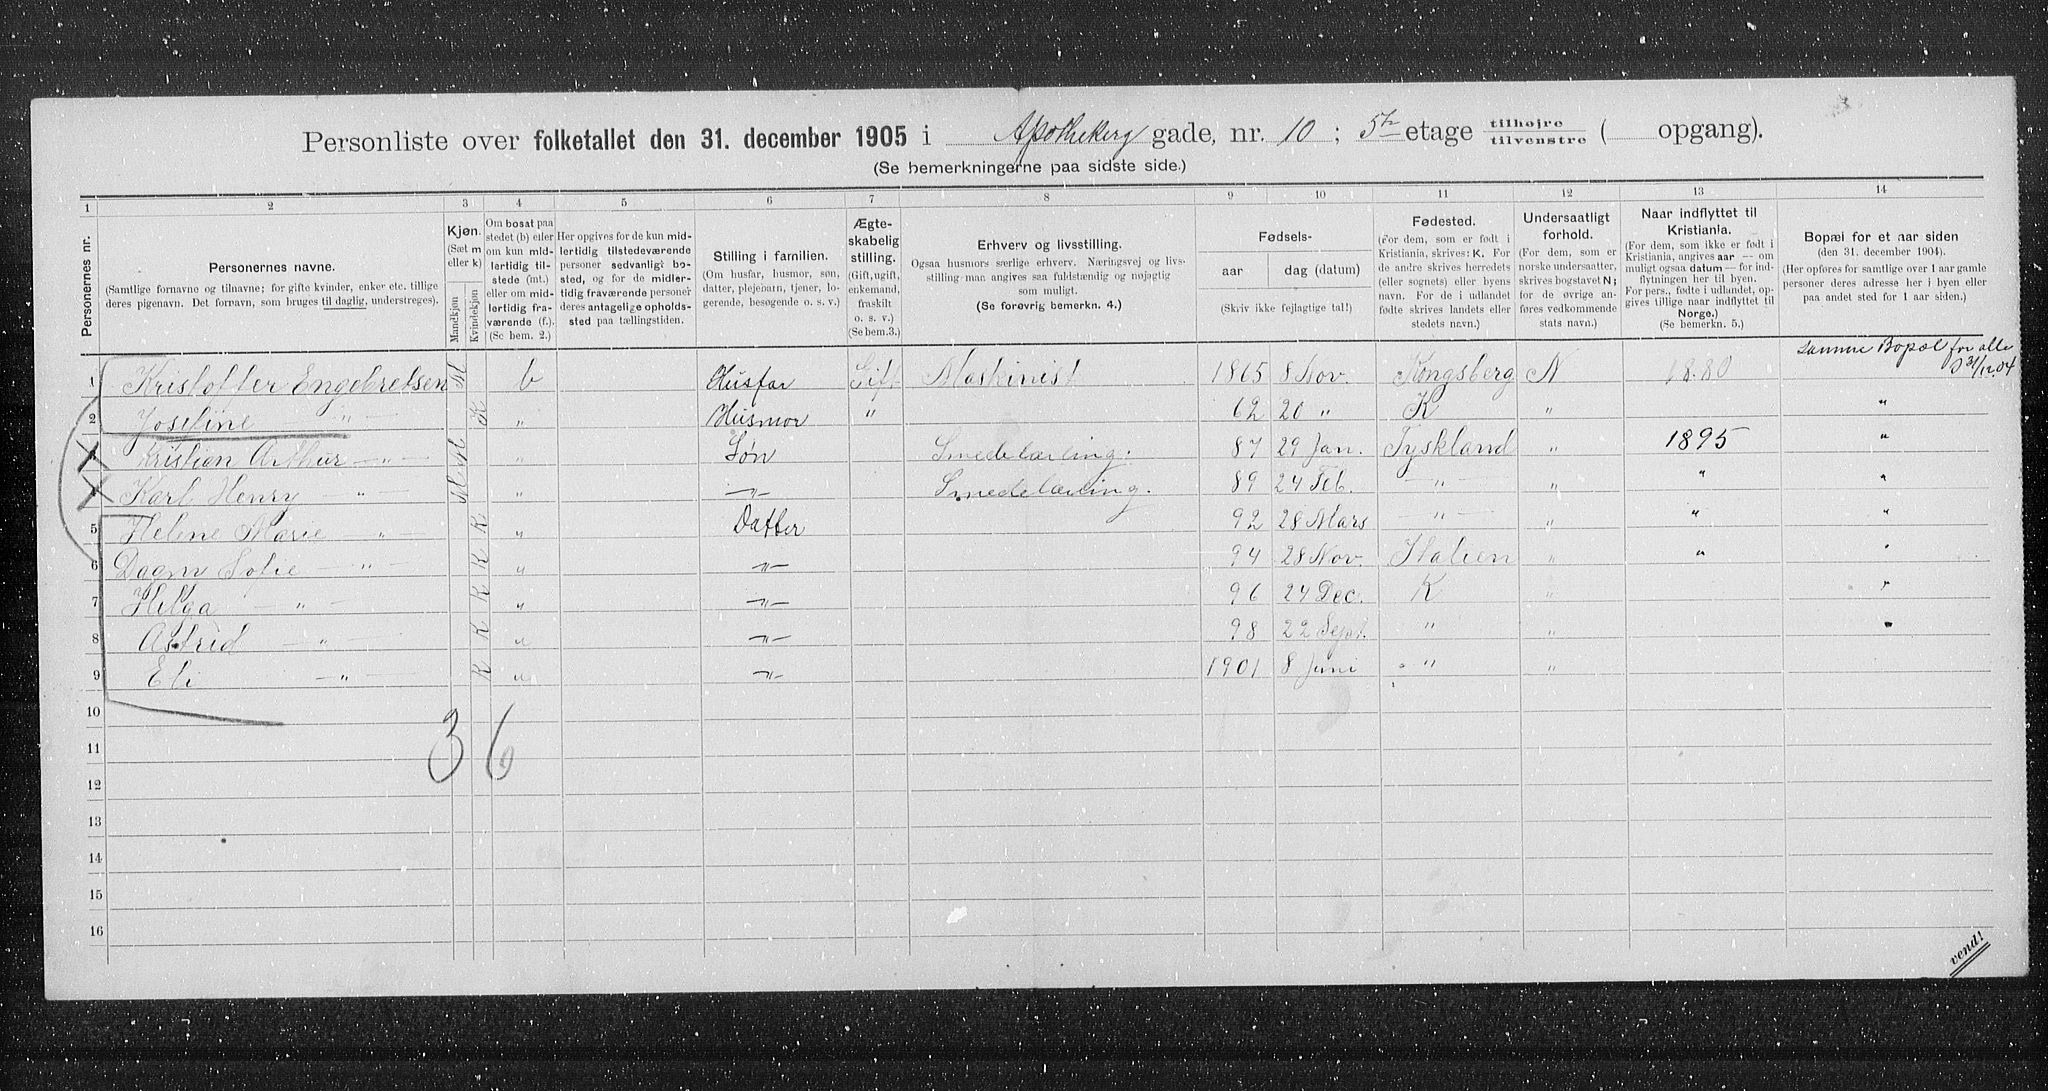 Personliste over folketallet den 31. december 1905 i Apothekerg gade, nr. 10 ; 5te etage tilhøjre tilvenstre ( opgang).
(Se bemerkningerne paa sidste side.)
1 2 3 4 5 6 7 8 9 10 11 12 13 14
Personernes nr.
Personernes navne.
(Samtlige fornavne og tilnavne; for gifte kvinder, enker etc. tillige deres pigenavn. Det fornavn, som bruges til daglig, understreges).
Kjøn.
(Sæt m eller k)
Mandkjøn
Kvindekjøn
Om bosat paa stedet (b) eller om kun midlertidig tilstede (mt.) eller om midlertidig fraværende (f.).
(Se bem. 2.)
Her opgives for de kun midlertidig tilstedeværende personer sedvanligt bosted, og for de midlertidig fraværende personer deres antagelige opholdssted paa tællingstiden.
Stilling i familien.
(Om husfar, husmor, søn, datter, plejebarn, tjener, logerende, besøgende o. s. v.)
Ægteskabelig stilling.
(Gift, ugift, enkemand, fraskilt o. s. v.)
(Se bem. 3.)
Erhverv og livsstilling.
Ogsaa husmors særlige erhverv. Næringsvej og livsstilling maa angives saa fuldstændig og nøjagtig som muligt.
(Se forøvrig bemerkn. 4.)
Fødsels-
aar
dag (datum)
(Skriv ikke fejlagtige tal!)
Fødested.
(For dem, som er født i Kristiania, skrives: K. For de andre skrives herredets (eller sognets) eller byens navn. For de i udlandet fødte skrives landets eller stedets navn.)
Undersaatligt forhold.
(For dem, som er norske undersaatter, skrives bogstavet N; for de øvrige anføres vedkommende stats navn.)
Naar indflyttet til Kristiania.
(For dem, som ikke er født i Kristiania, angives aar — om muligt ogsaa datum — for indflytningen her til byen. For pers., fødte i udlandet, opgives tillige naar indflyttet til Norge.)
(Se bemerkn. 5.)
Bopæl for et aar siden
(den 31. december 1904).
(Her opføres for samtlige over 1 aar gamle personer deres adresse her i byen eller paa andet sted for 1 aar siden.)
Samme Bopæl for alle 31/12 04
1 Kristoffer Engebretsen M b Husfar Gift Maskinist 1865 8 Nov. Kongsberg N 1880
2 Josefine — " — K " Husmor " 62 20 " K " "
3 Kristian Arthur — " — M " Søn Smedelærling. 87 29 Jan. Tyskland " 1895 "
4 Karl Henry — " — M " — " — Smedelærling. 89 24 Feb. — " — " " "
5 Helene Marie — " — K " Datter 92 28 Mars — " — " " "
6 Dagny Sofie — " — K " — " — 94 28 Nov. Italien " " "
7 Helga — " — K " — " — 96 24 Dec. K " "
8 Astrid — " — K " — " — 98 22 Sept. " " "
9 Eli — " — K " — " — 1901 8 Juni " "
10
3 6
11
12
13
14
15
16
vend!